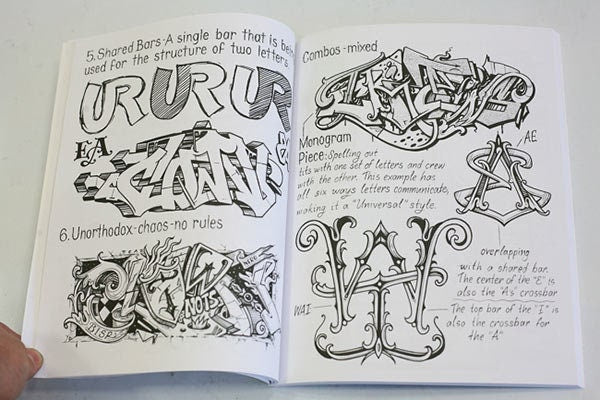 5. Shared Bars-A single bar that is bei
used for the structure of two letters.
UR UR UR
E&A
6. Unorthodox-chaos-no rules
NOTS
Combos-mixed
Monogram
Piece: Spelling out
tits with one set of letters and crew
with the other. This example has
all six ways letters communicate,
making it a "Universal" style.
AE
overlapping
with a shared bar.
The center of the "E" is
also the "A's" crossbar
WAI
The top bar of the "I" is
also the crossbar for
the "A"